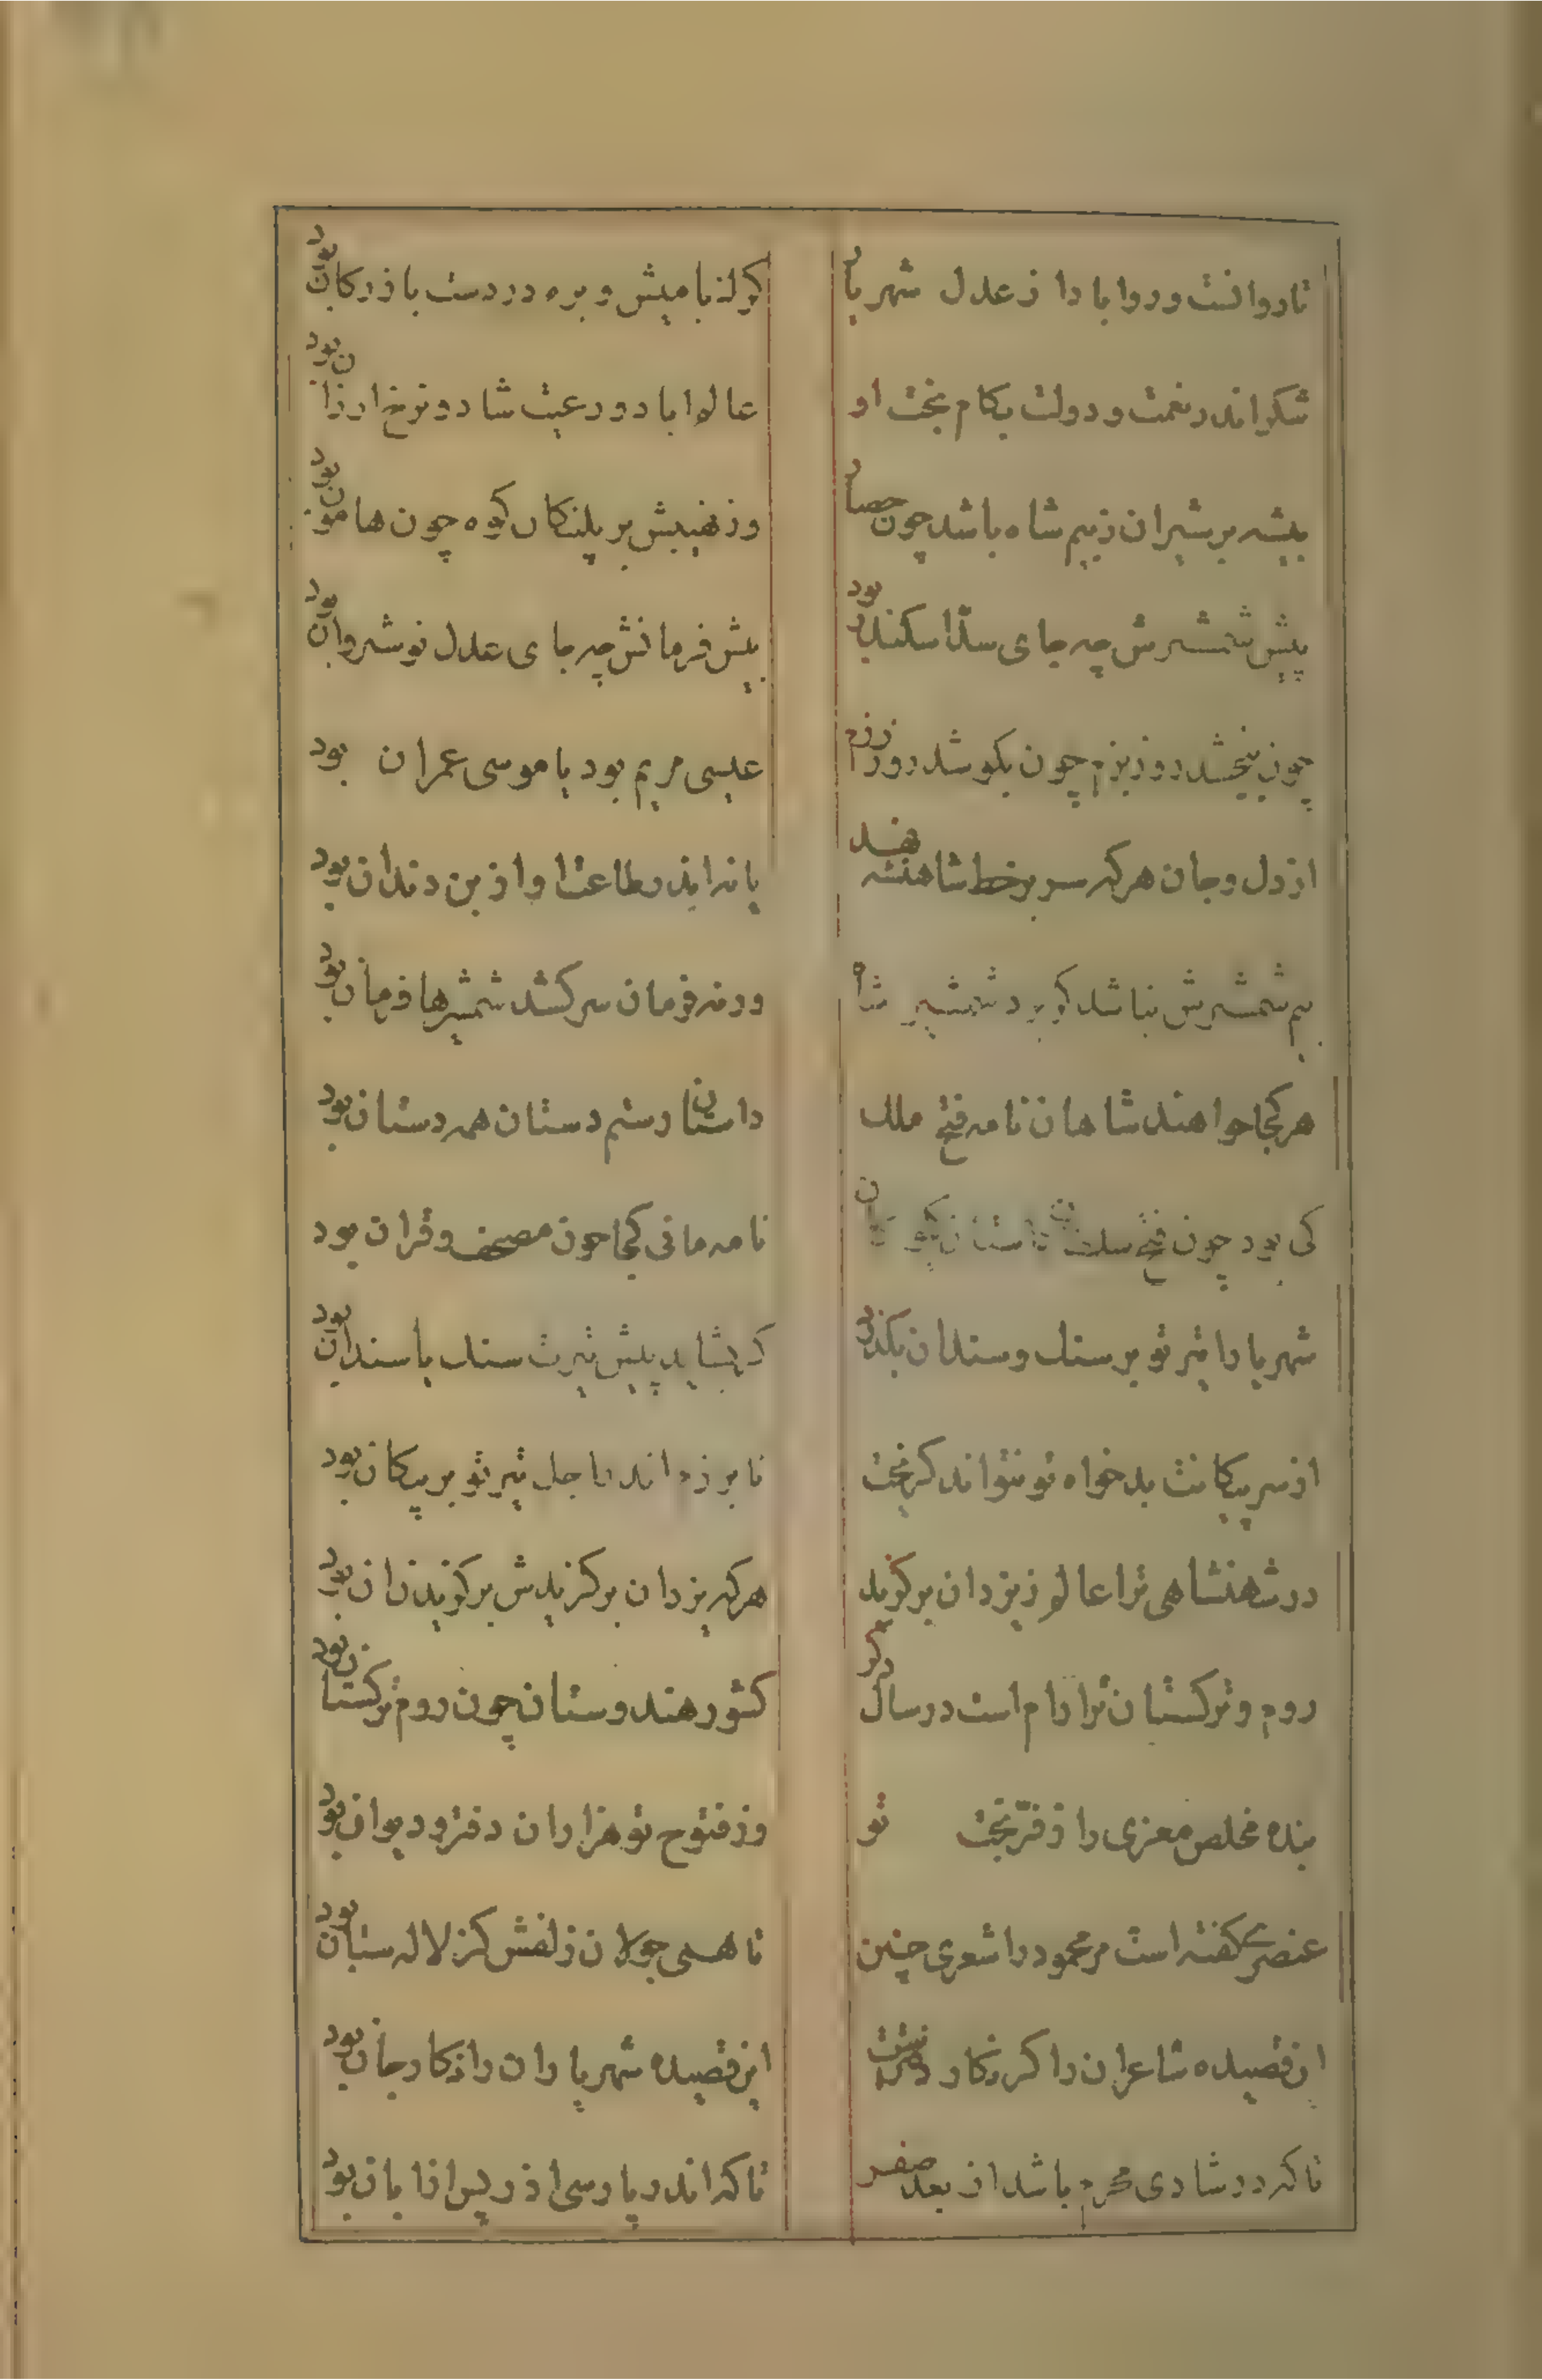 تاروانست و روا بادا ز عدل شهریار
کرک با میش و بره در دست بازرکان بود
شکر اندر نعمت و دولت بکام بخت او
عالم اباد و رعیت شاد و نرخ ارزان بود
بیشه بر شیران ز بیم شاه باشد چون حصار
وز نهیبش بر پلنکان کوه چون هامون بود
پیش شمشیرش چه جای سد اسکندر بود
پیش فرمانش چه جای عدل نوشروان بود
چون ببخشد روز بزم چون بکوشد روز رزم
عیسی مریم بود یا موسی عمران بود
از دل و جان هرکه سر بر خط شاهنشه نهد
یا نه اندر طاعت او از بن دندان بود
بیم شمشیرش نباشد کو برد شمشیر شاه
ور نه فرمان سر کشد شمشیرها فرمان بود
هر کجا خواهند شاهان نامه فتح ملک
داستان رستم دستان همه دستان بود
کی بود چون فتح سلطان داستان
نامه مانی کجا چون مصحف و قران بود
شهریارا تیر تو بر سنک و سندان بکذرد
که بشاید پیش تیرت سنک یا سندان بود
از سر پیکانت بدخواه تو نتواند کریخت
نا برزه اندر اجل تیر تو بر پیکان بود
در شهنشاهی ترا عالم ز یزدان برکزید
هرکه یزدان برکزیدش برکزیدن زان بود
روم و ترکستان ترا رام است در سال دکر
کشور هندوستان چون روم ترکستان بود
بنده مخلص معزی را ز فر بخت تو
وز فتوح تو هزاران دفتر و دیوان بود
عنصری کفته است مر محمود را شعری چنین
تا همی جولان زلفش کرد لاله ستان بود
این قصیده شاعران را کر نکار دفترست
این قصیده شهریاران را نکار جان بود
تا که در شادی محرم باشد از بعد صفر
تا که اندر پارسی اذر پس از ابان بود